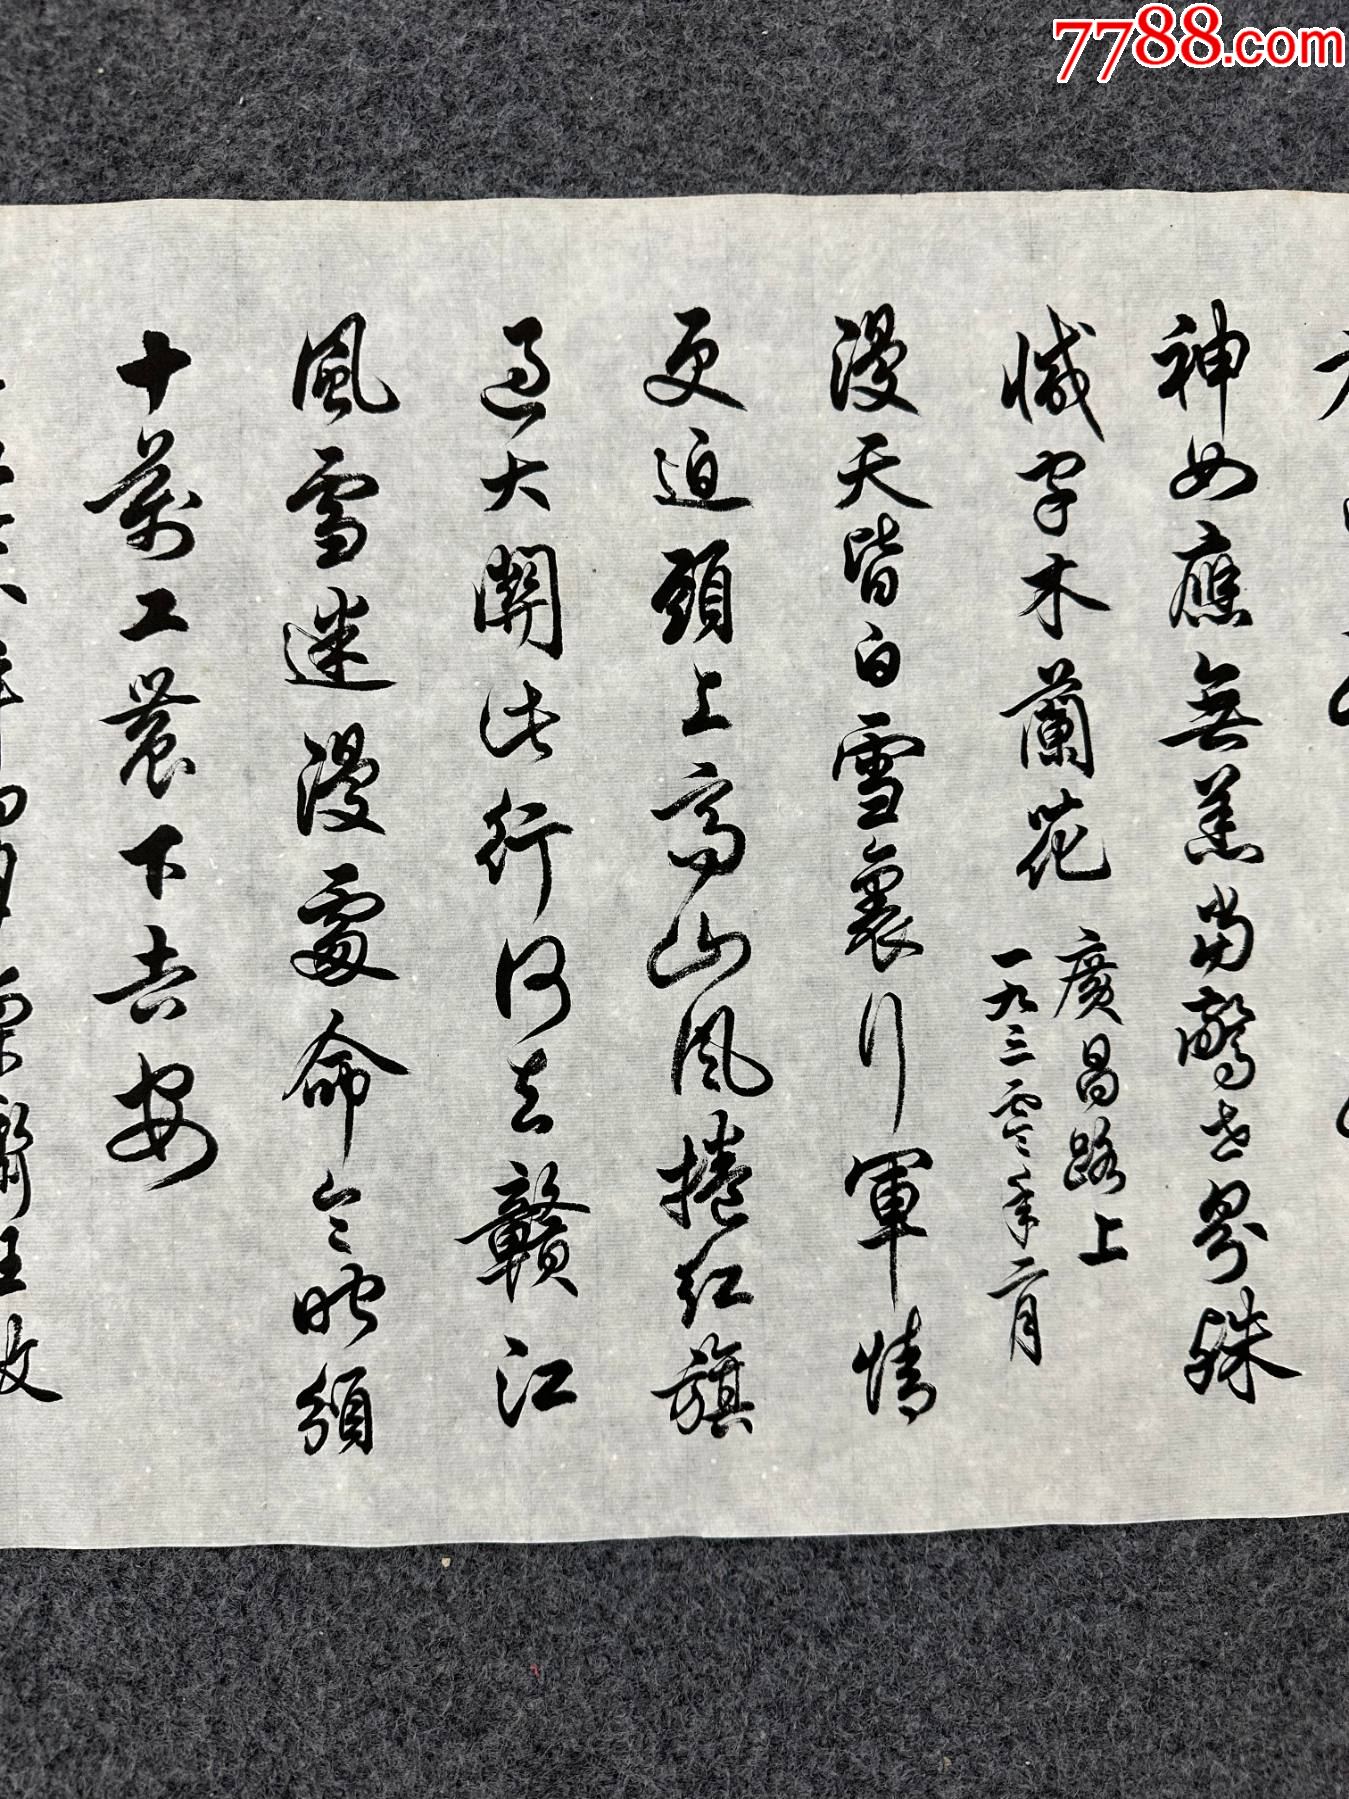 7788.com
神女應無恙當驚世界殊
減字木蘭花
廣昌路上
一九三零年二月
漫天皆白雪裏行軍情
更迫頭上高山風捲紅旗
過大關此行何去贛江
風雪迷漫處命令昨頒
十萬工農下吉安